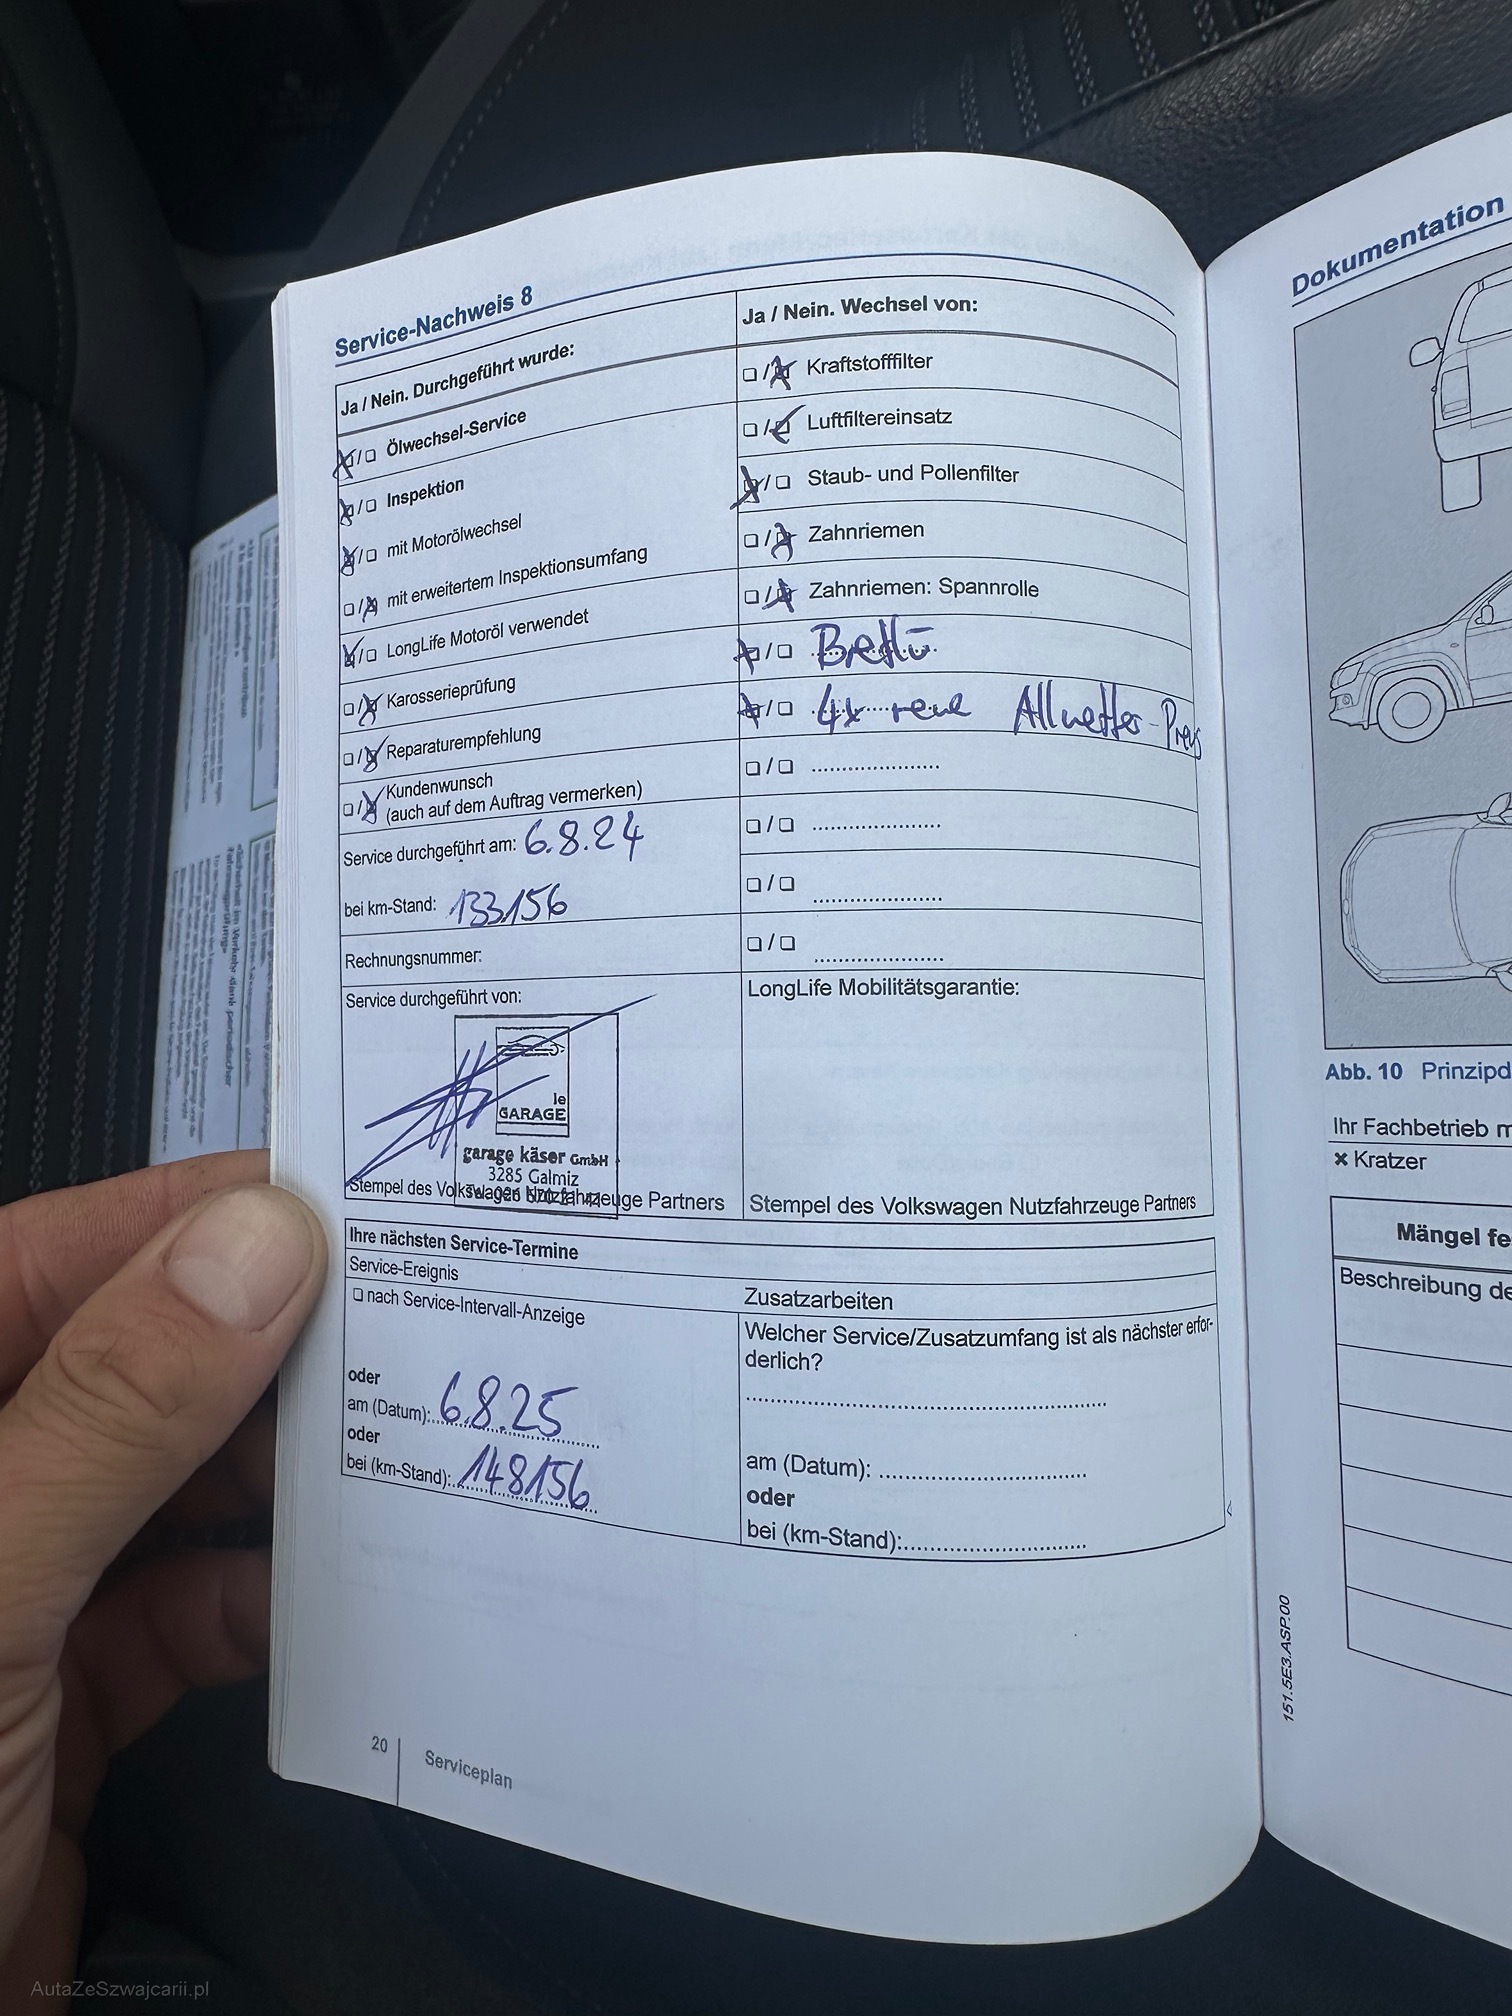 Service-Nachweis 8
Ja / Nein. Durchgeführt wurde:
Ölwechsel-Service
Inspektion
mit Motorölwechsel
mit erweitertem Inspektionsumfang
LongLife Motoröl verwendet
Karosserieprüfung
Reparaturempfehlung
Kundenwunsch
(auch auf dem Auftrag vermerken)
Service durchgeführt am: 6.8.24
bei km-Stand: 133156
Rechnungsnummer:
Service durchgeführt von:
le
GARAGE
garage käser GmbH
3285 Galmiz
Stempel des Volkswagen Nutzfahrzeuge Partners
Ja / Nein. Wechsel von:
Kraftstofffilter
Luftfiltereinsatz
Staub- und Pollenfilter
Zahnriemen
Zahnriemen: Spannrolle
4x neue Allwetter-
LongLife Mobilitätsgarantie:
Stempel des Volkswagen Nutzfahrzeuge Partners
Ihre nächsten Service-Termine
Service-Ereignis
nach Service-Intervall-Anzeige
oder
am (Datum): 6.8.25
oder
bei (km-Stand): 148156
Zusatzarbeiten
Welcher Service/Zusatzumfang ist als nächster erfor-
derlich?
am (Datum):
oder
bei (km-Stand):
20
Serviceplan
Dokumentation
Abb. 10 Prinzipd
Ihr Fachbetrieb m
× Kratzer
Mängel fe
Beschreibung de
151.5E3.ASP.00
AutaZeSzwajcarii.pl